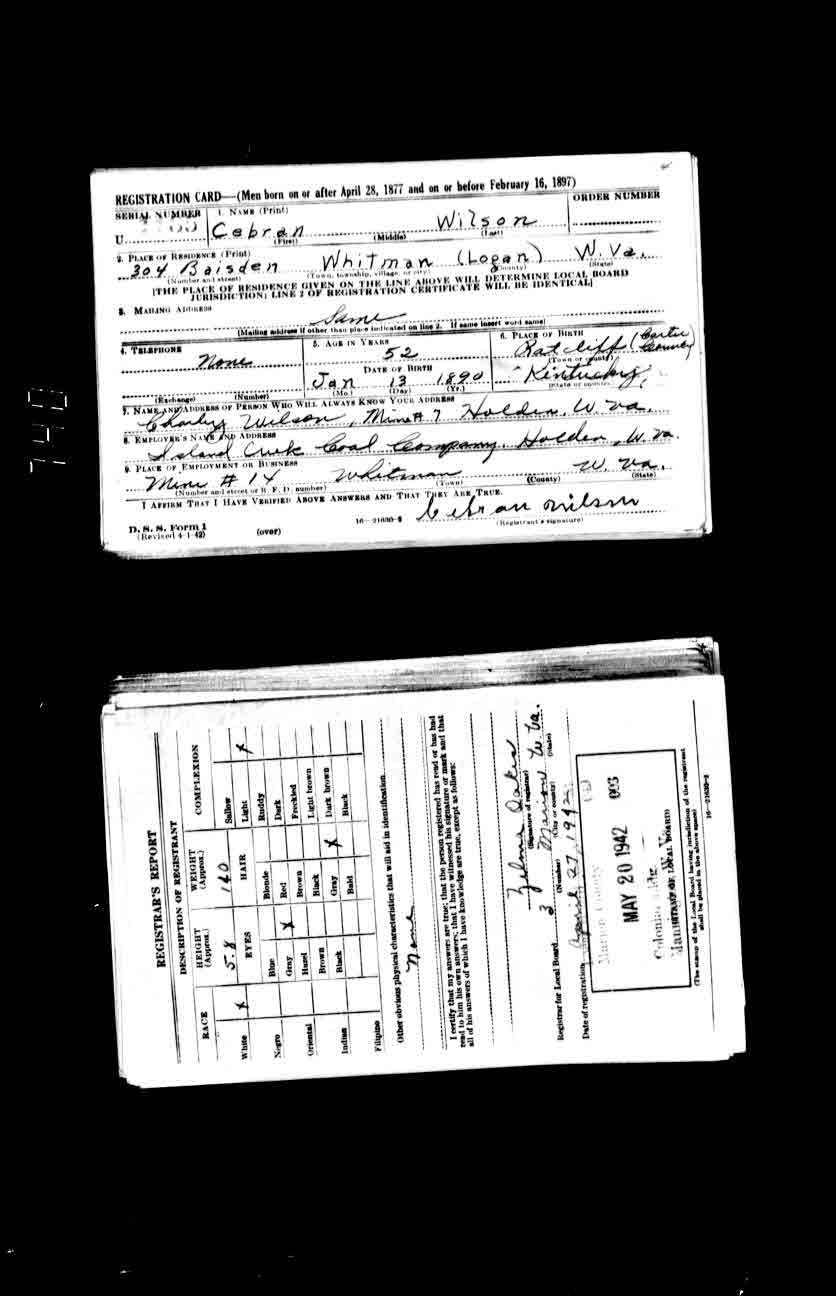 REGISTRATION CARD—(Men born on or after April 28, 1877 and on or before February 16, 1897)
SERIAL NUMBER 1. NAME (Print) ORDER NUMBER
U Cebran Wilson
(First) (Middle) (Last)
2. PLACE OF RESIDENCE (Print)
304 Baisden Whitman (Logan) W. Va.
(Number and street) (Town, township, village, or city) (County) (State)
[THE PLACE OF RESIDENCE GIVEN ON THE LINE ABOVE WILL DETERMINE LOCAL BOARD
JURISDICTION; LINE 2 OF REGISTRATION CERTIFICATE WILL BE IDENTICAL]
3. MAILING ADDRESS
Same
[Mailing address if other than place indicated on line 2. If same insert word same]
4. TELEPHONE 5. AGE IN YEARS 6. PLACE OF BIRTH
None 52 Ratcliff (Carter County
DATE OF BIRTH (Town or county)
Jan 13 1890 Kentucky
(Exchange) (Number) (Mo.) (Day) (Yr.) (State or country)
7. NAME AND ADDRESS OF PERSON WHO WILL ALWAYS KNOW YOUR ADDRESS
Charley Wilson, Mine # 7 Holden, W. Va.
8. EMPLOYER'S NAME AND ADDRESS
Island Creek Coal Company, Holden, W. Va.
9. PLACE OF EMPLOYMENT OR BUSINESS
Mine # 14 Whitman W. Va.
(Number and street or R. F. D. number) (Town) (County) (State)
I AFFIRM THAT I HAVE VERIFIED ABOVE ANSWERS AND THAT THEY ARE TRUE.
Cebran Wilson
D. S. S. Form 1 16—21630-2 (Registrant's signature)
(Revised 4-1-42) (over)
740
REGISTRAR'S REPORT
DESCRIPTION OF REGISTRANT
RACE HEIGHT (Approx.) WEIGHT (Approx.) COMPLEXION
5.8 140 Sallow
White X EYES HAIR Light X
Blue Blonde Ruddy
Negro Gray X Red Dark
Hazel Brown Freckled
Oriental Brown Black Light brown
Black Gray X Dark brown
Indian Bald Black
Filipino
Other obvious physical characteristics that will aid in identification
None
I certify that my answers are true; that the person registered has read or has had
read to him his own answers; that I have witnessed his signature or mark and that
all of his answers of which I have knowledge are true, except as follows:
Zelma Oakes
(Signature of registrar)
Registrar for Local Board 3 Marion W. Va.
(Number) (City or county) (State)
Date of registration April 27, 1942
Marion County 003
MAY 20 1942
Colonial Bldg.
(STAMP OF LOCAL BOARD)
(The stamp of the Local Board having jurisdiction of the registrant
shall be placed in the above space)
16—21630-2